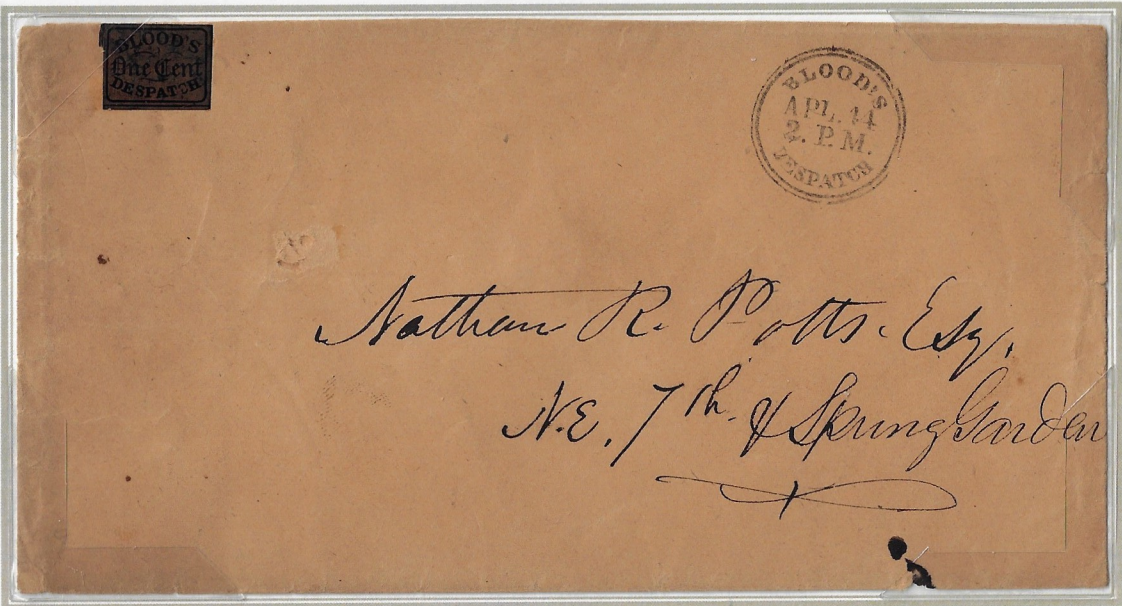 BLOOD'S
One Cent
DESPATCH
BLOOD'S
APL. 14
2. P.M.
DESPATCH
Nathan R. Potts. Esq.
N.E. 7th & Spring Garden